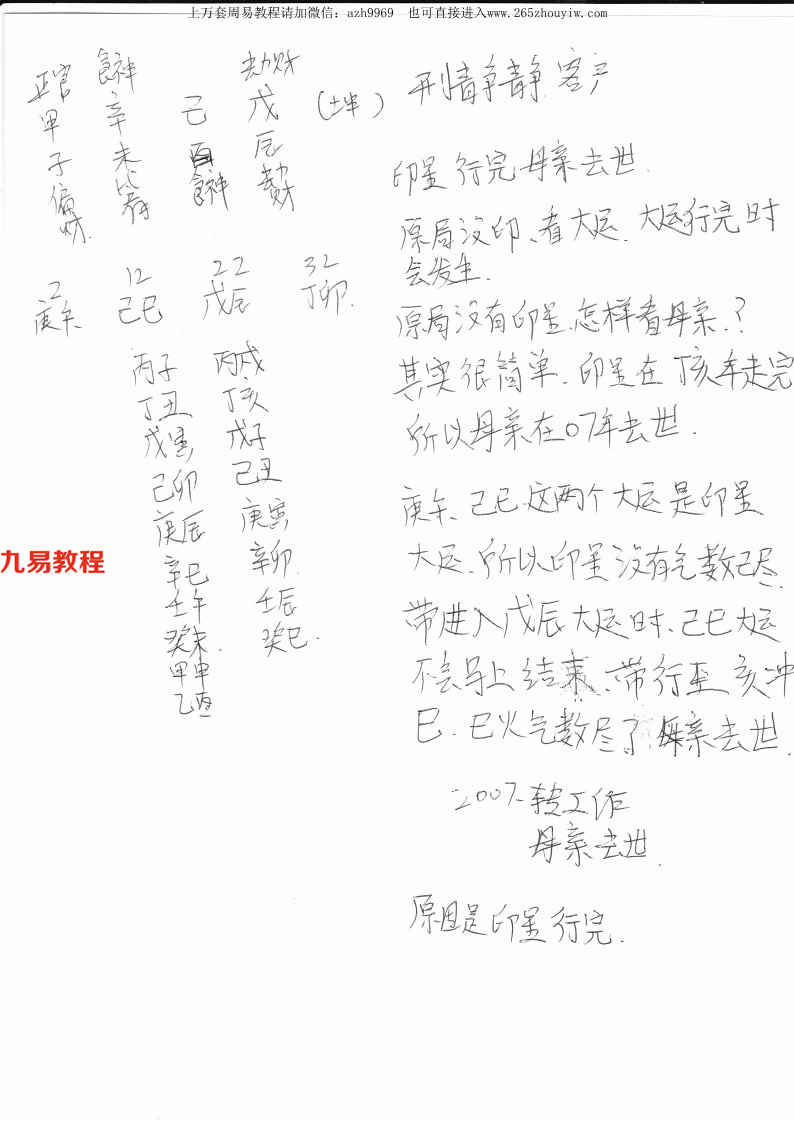 上万套周易教程请加微信：azh9969　也可直接进入www.265zhouyiw.com
正官 食神 劫财
甲 辛 己 戊 (坤)
子 未 酉 辰
偏财 比肩 食神 劫财
2 12 22 32
庚午 己巳 戊辰 丁卯
丙子 丙戌
丁丑 丁亥
戊寅 戊子
己卯 己丑
庚辰 庚寅
辛巳 辛卯
壬午 壬辰
癸未 癸巳.
甲申
乙酉
静 客户
印星行完母亲去世.
原局没印、看大运. 大运行完时
会发生.
原局没有印星.怎样看母亲.?
其实很简单. 印星在丁亥年走完
所以母亲在07年去世.
庚午、己巳.这两个大运是印星
大运.所以印星没有气数已尽.
带进入戊辰大运时、己巳大运
不会马上结束、带行至亥冲
巳. 巳火气数尽了.母亲去世.
2007-转工作
母亲去世.
原因是印星行完.
九易教程